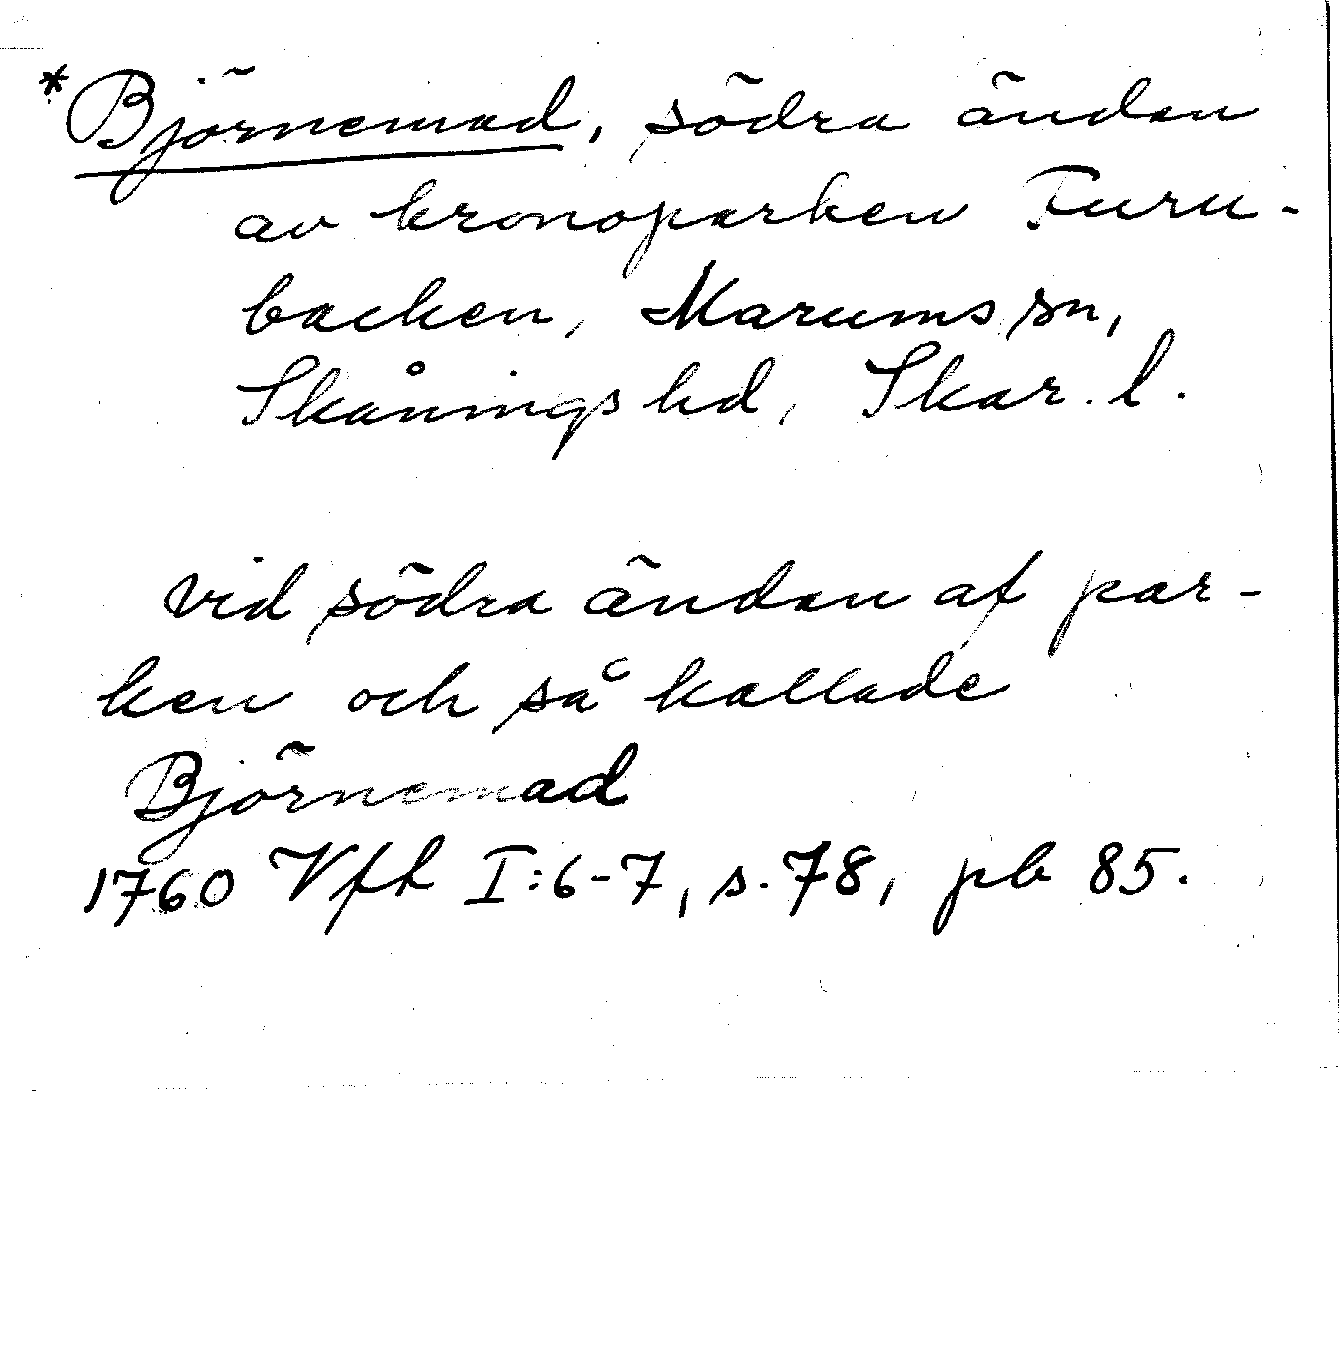 *Björnemad, södra ändan
av kronoparken Furu-
backen, Marums sn,
Skånings hd, Skar. l.
vid södra ändan af par-
ken och så kallade
Björnemad
1760 Vfft I:6-7, s. 78, pb 85.